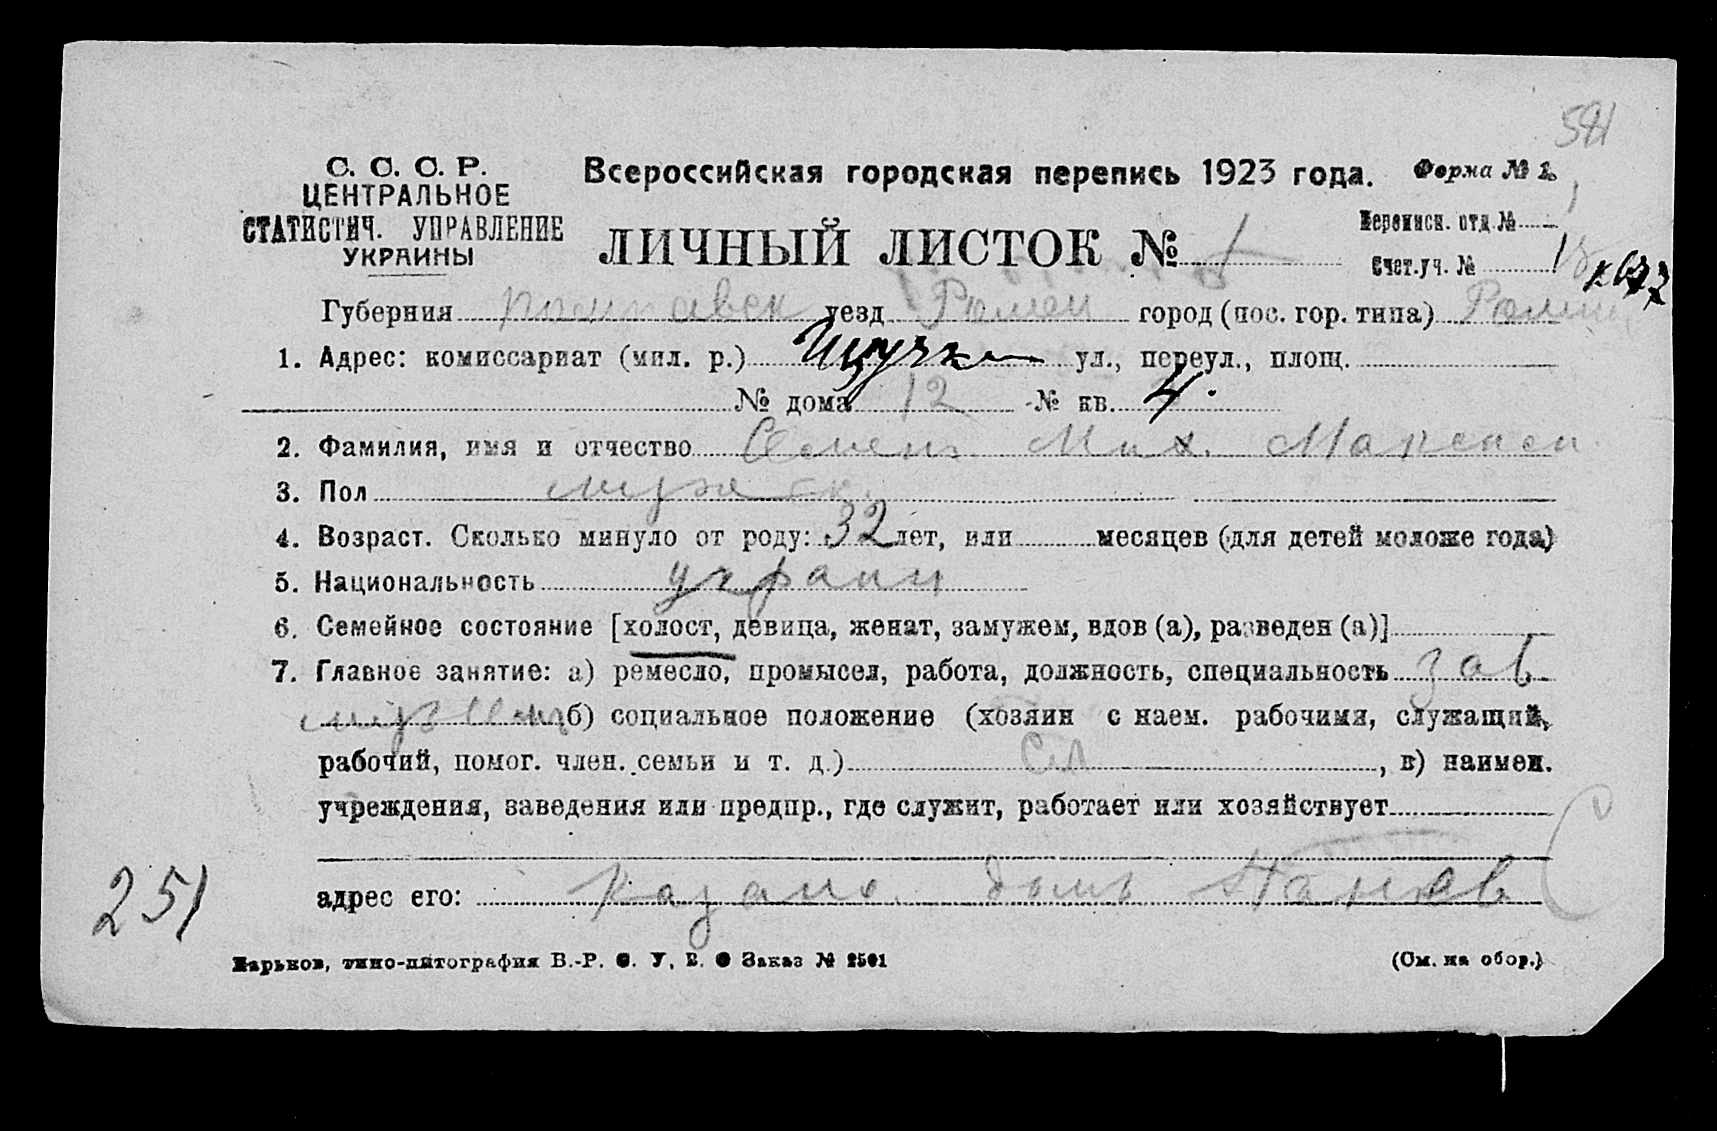 541
С. С. С. Р.
ЦЕНТРАЛЬНОЕ
СТАТИСТИЧ. УПРАВЛЕНИЕ
УКРАИНЫ
Всероссийская городская перепись 1923 года. Форма № 1.
ЛИЧНЫЙ ЛИСТОК № 1
Переписн. отд. №
Счет.уч. №
Губерния Полтавск уезд Ромен город (пос. гор. типа) Ромны
1. Адрес: комиссариат (мил. р.) ул., переул., площ.
№ дома 12 № кв. 4.
2. Фамилия, имя и отчество Семен Мих.
3. Пол мужск.
4. Возраст. Сколько минуло от роду: 32 лет, или месяцев (для детей моложе года)
5. Национальность украин
6. Семейное состояние [холост, девица, женат, замужем, вдов (а), разведен (а)]
7. Главное занятие: а) ремесло, промысел, работа, должность, специальность зав
б) социальное положение (хозяин с наем. рабочими, служащий,
рабочий, помог. член. семьи и т. д.) Сл, в) наимен.
учреждения, заведения или предпр., где служит, работает или хозяйствует
адрес его: домъ
251
Харьков, типо-литография В.-Р. Ф. У. В. Ф Заказ № 2501
(См. на обор.)